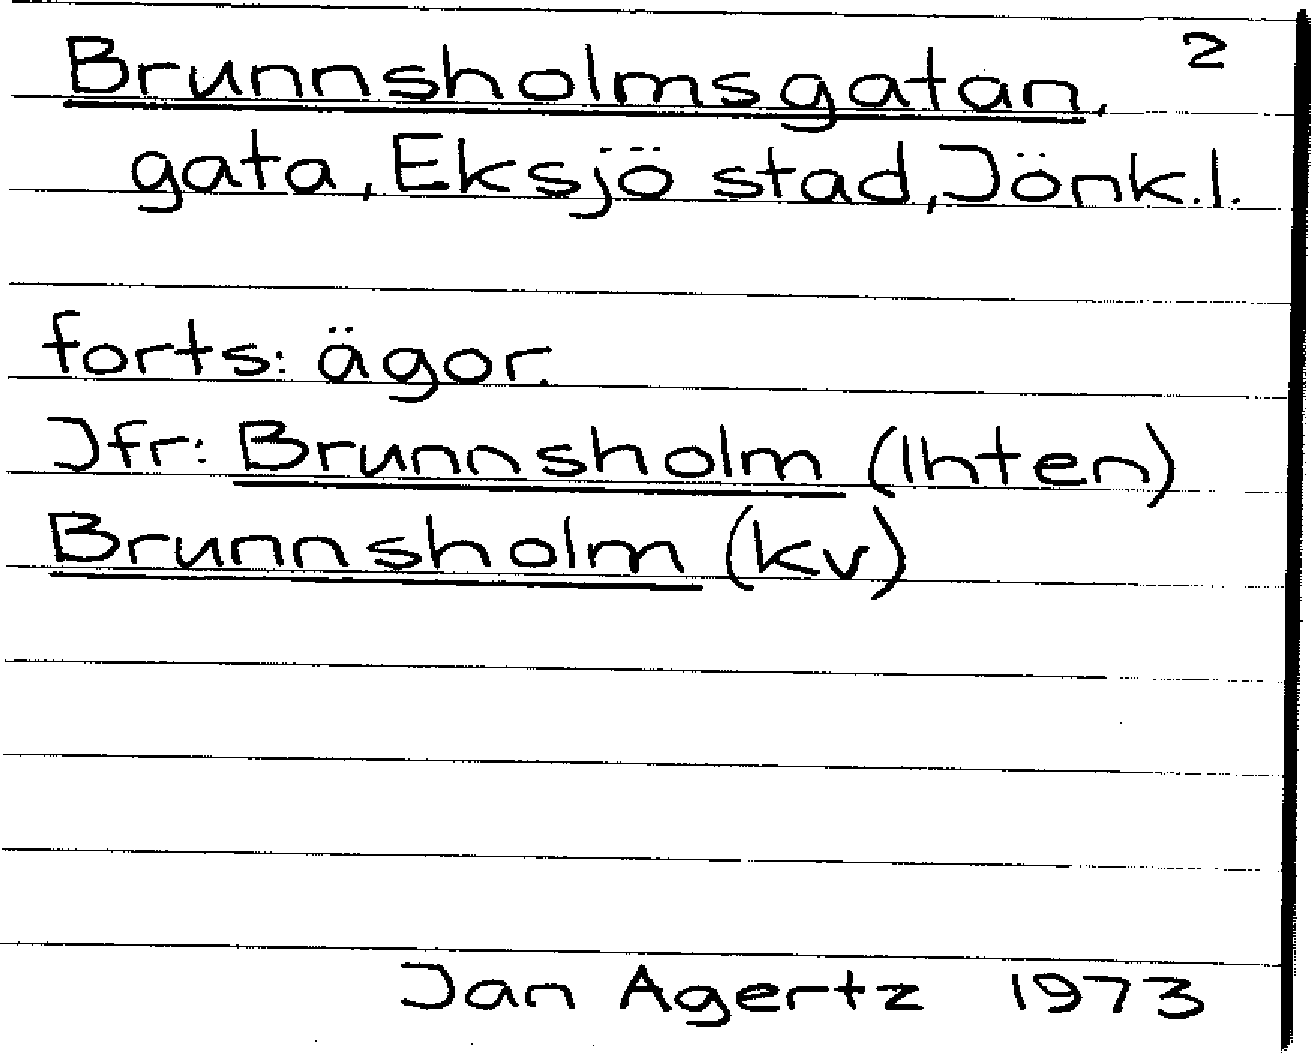 2
Brunnsholmsgatan,
gata, Eksjö stad, Jönk.l.
forts: ägor.
Jfr: Brunnsholm (lhten)
Brunnsholm (kv)
Jan Agertz 1973